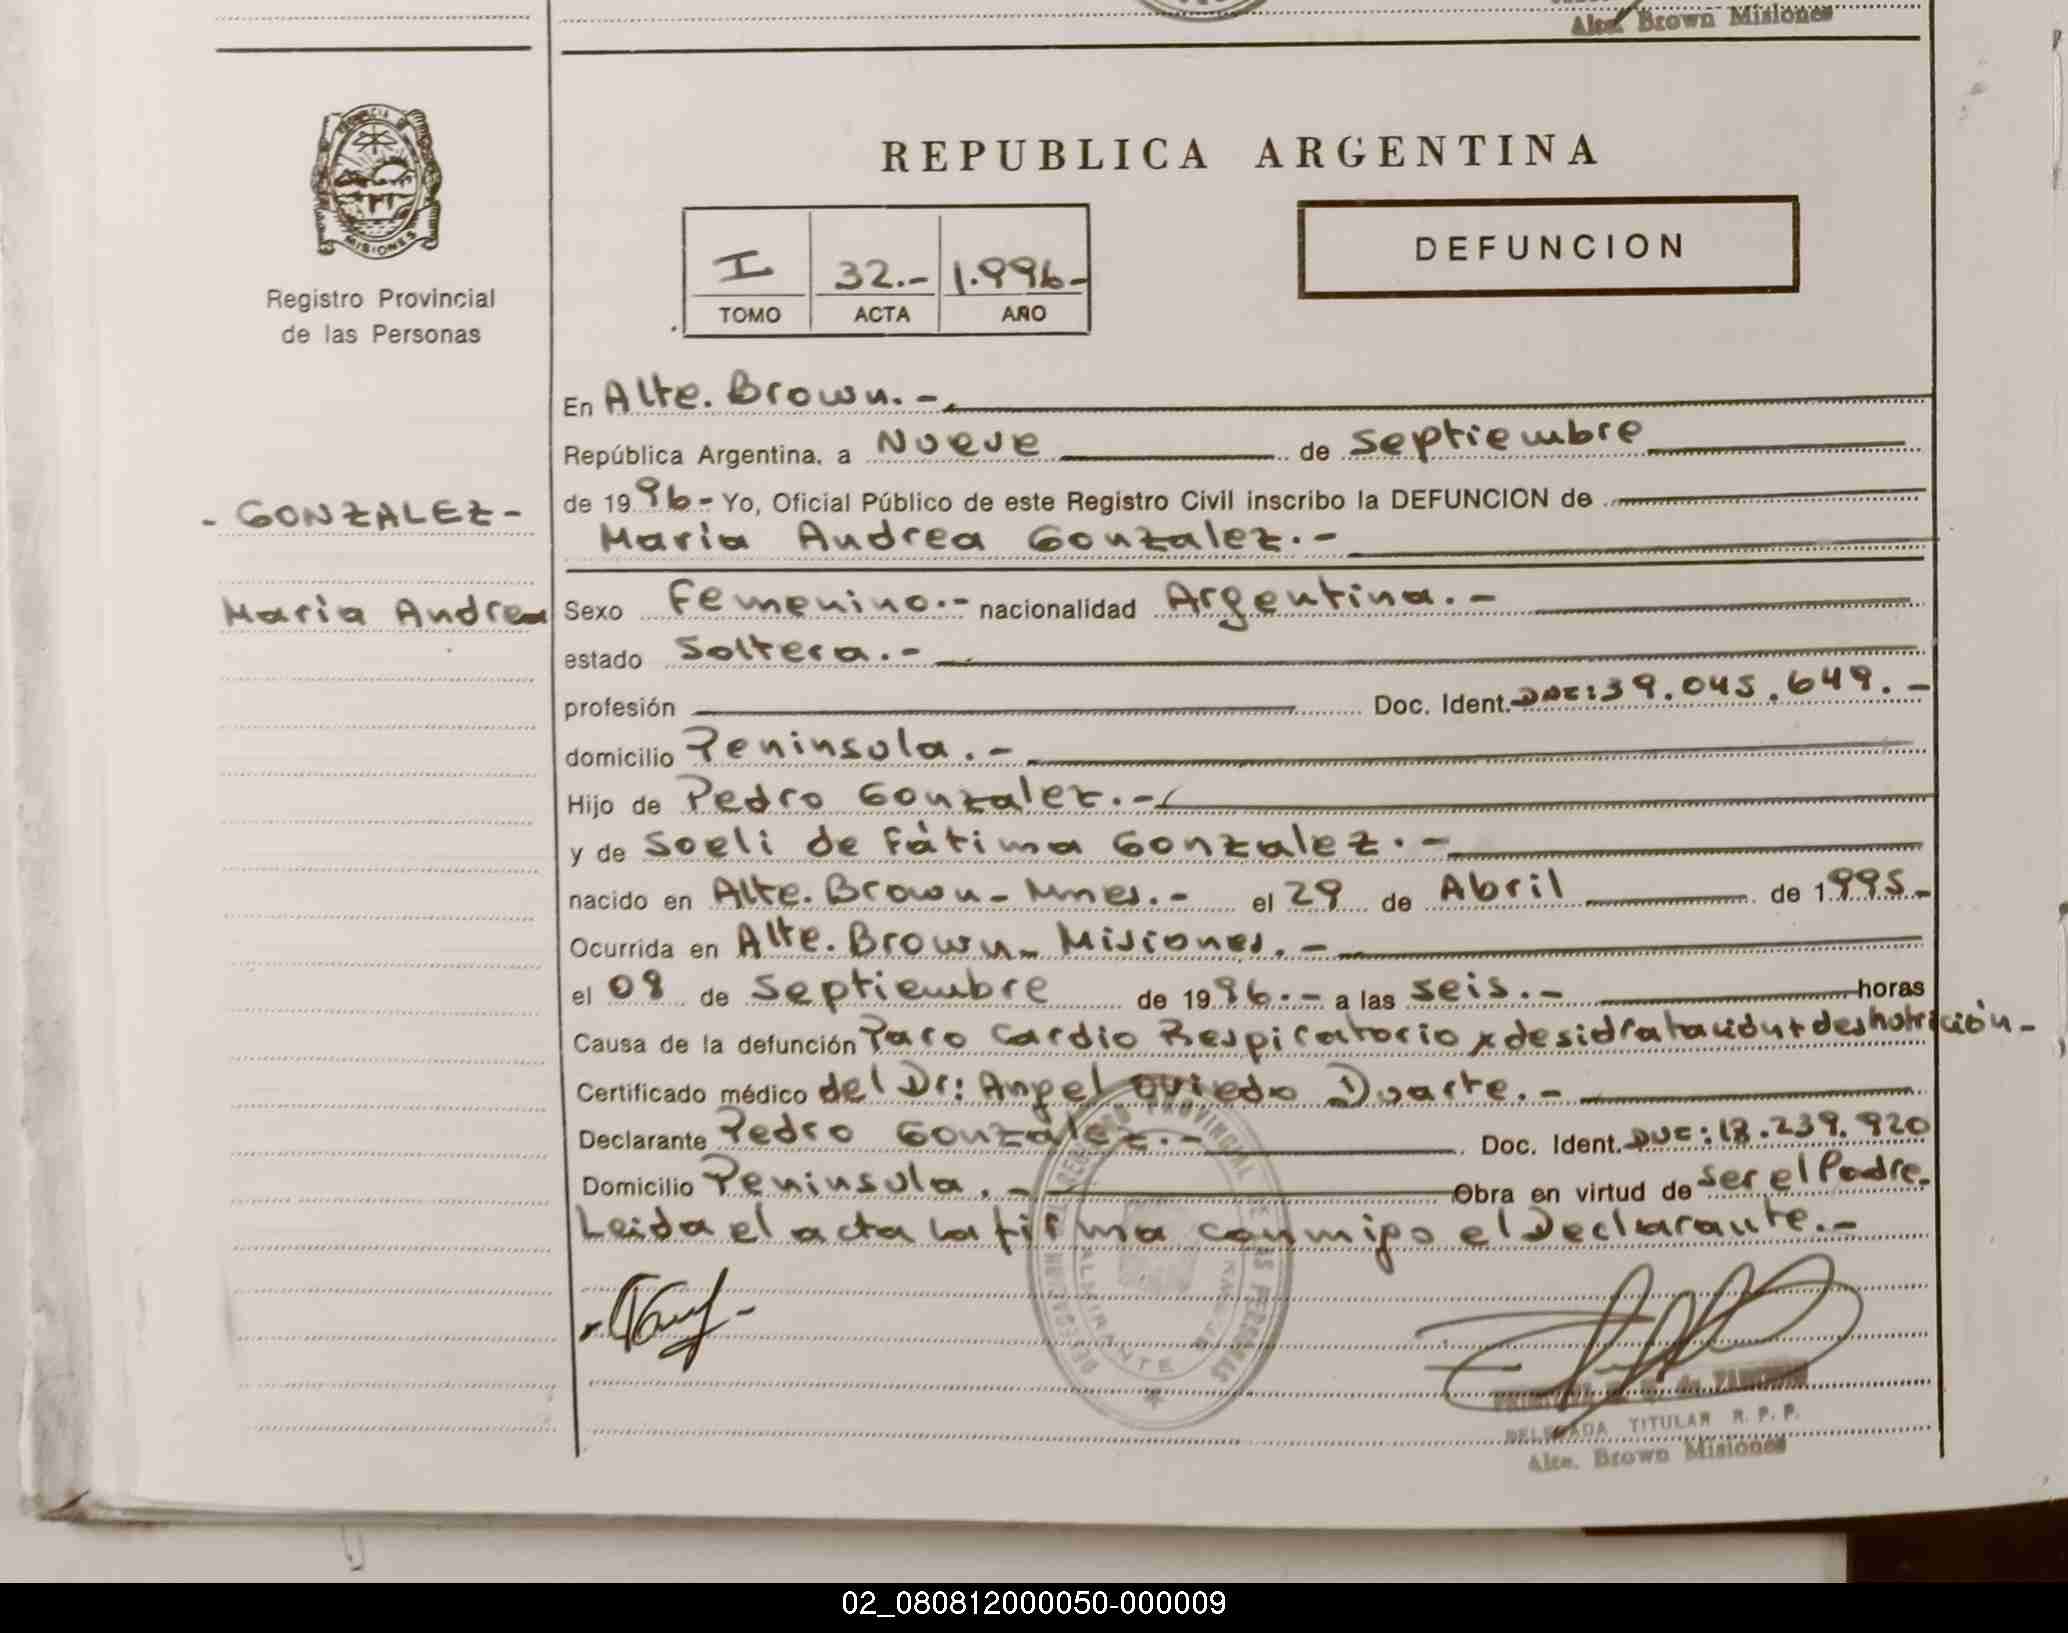 Alte. Brown Misiones
PROVINCIA DE
MISIONES
Registro Provincial
de las Personas
REPUBLICA ARGENTINA
I 32.- 1.996-
TOMO ACTA AÑO
DEFUNCION
En Alte. Brown.-
República Argentina, a Nueve de Septiembre
de 1996- Yo, Oficial Público de este Registro Civil inscribo la DEFUNCION de
- GONZALEZ -
Maria Andrea Gonzalez.-
Maria Andrea
Sexo Femenino.- nacionalidad Argentina.-
estado Soltera.-
profesión Doc. Ident. DUE: 39.045.649.-
domicilio Peninsula.-
Hijo de Pedro Gonzalez.-
y de Soeli de Fátima Gonzalez.-
nacido en Alte. Brown - Mnes.- el 29 de Abril de 1995-
Ocurrida en Alte. Brown - Misiones.-
el 08 de Septiembre de 1996.- a las seis.- horas
Causa de la defunción Paro Cardio Respiratorio x desidratación + deshotrición-
Certificado médico del Dr: Angel Oviedo Duarte.-
Declarante Pedro Gonzalez.- Doc. Ident. DUE: 18.239.920
Domicilio Peninsula.- Obra en virtud de ser el Padre.
Leida el acta la firma conmigo el Declarante.-
REGISTRO PROVINCIAL DE LAS PERSONAS
ALMIRANTE BROWN
DELEGADA TITULAR R. P. P.
Alte. Brown Misiones
02_080812000050-000009